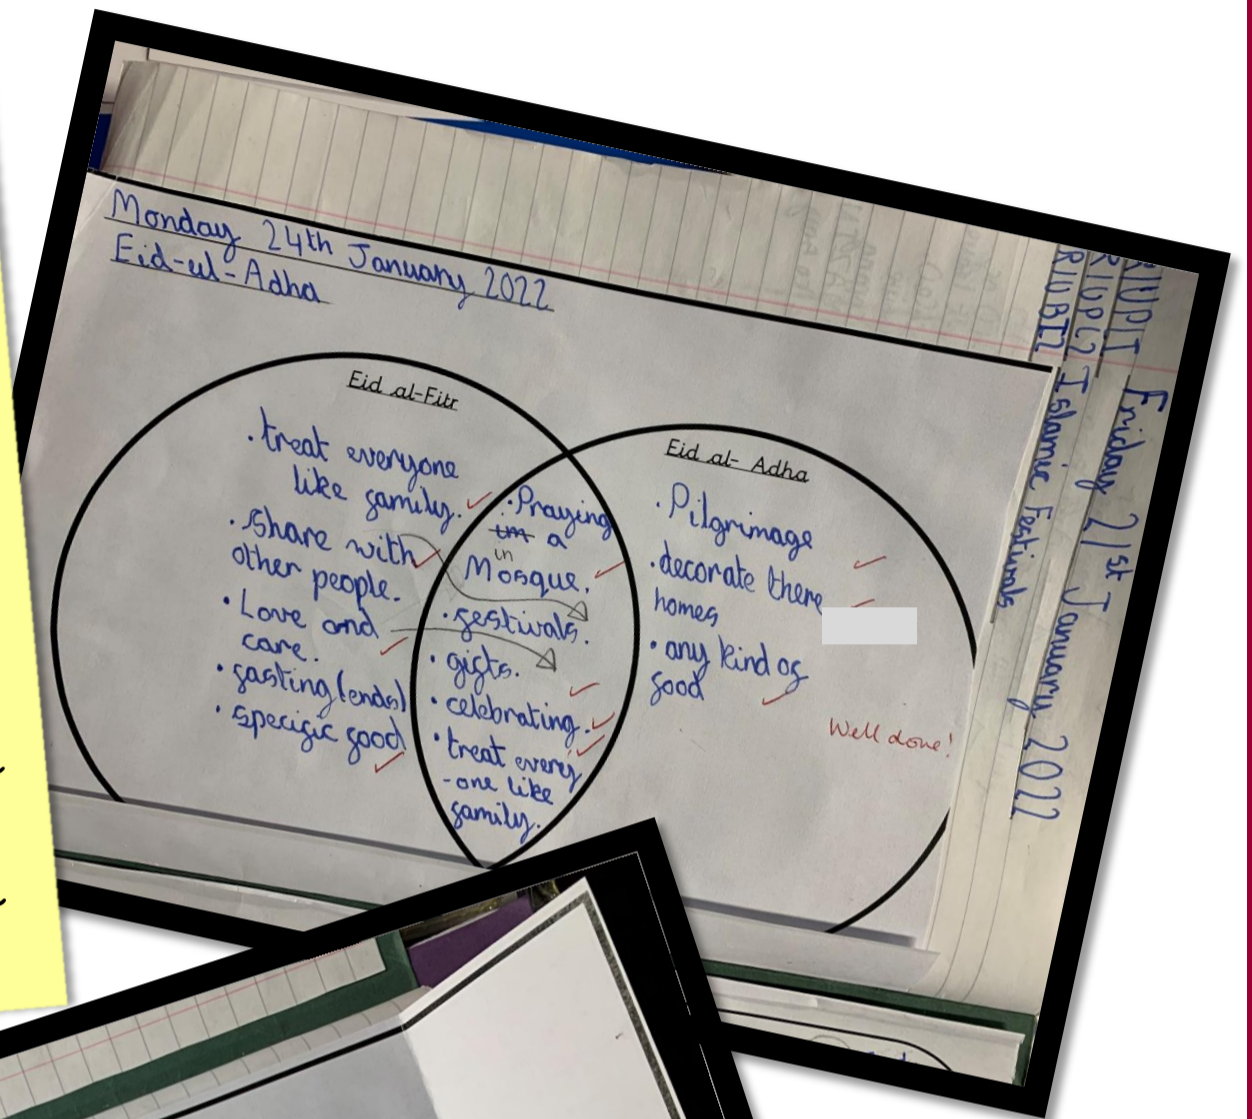 Monday 24th January 2022
Eid-ul-Adha
Eid al-Fitr
. treat everyone
like family.
. share with
other people.
• Love and
care.
• fasting (ends)
• specific food
. Praying
im a
in
Mosque.
. festivals.
• gifts.
• celebrating.
• treat every
-one like
family.
Eid al- Adha
. Pilgrimage
. decorate there
homes
• any kind of
food
Well done!
Friday 21st January 2022
Islamic Festivals